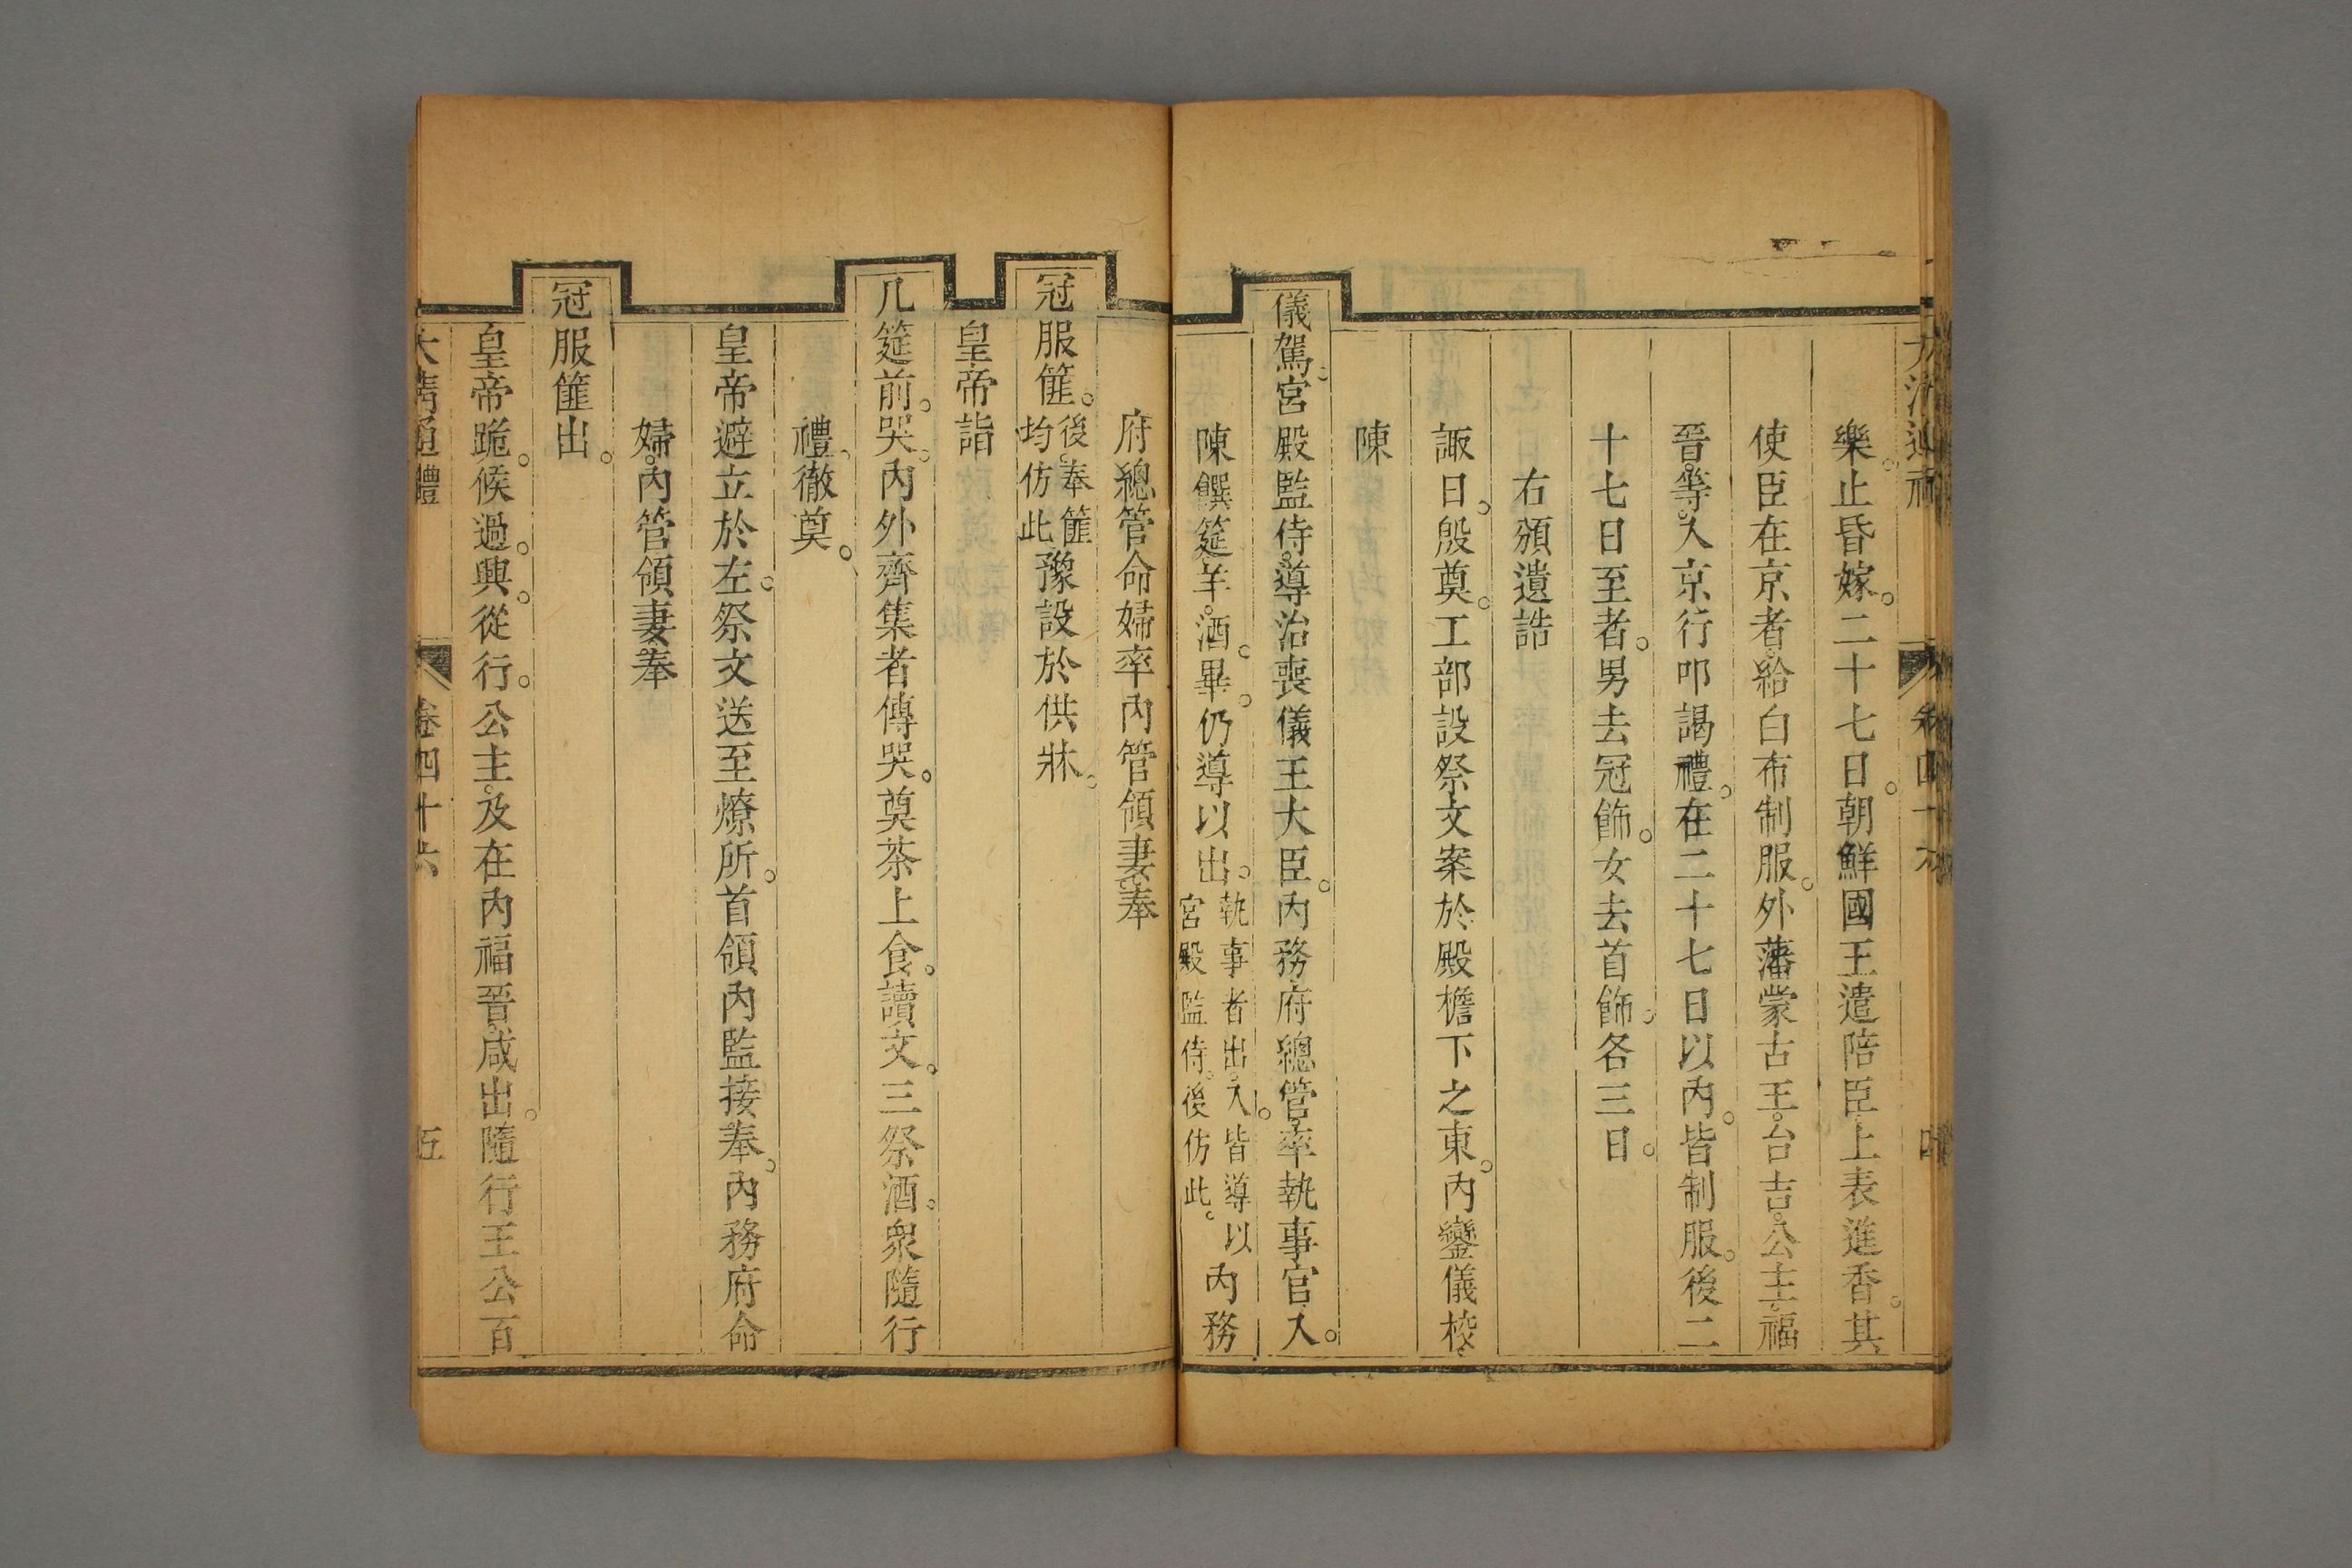 大清通禮 卷四十六 四
樂。止昏嫁。二十七日。朝鮮國王遣陪臣上表進香。其
使臣在京者。給白布制服。外藩蒙古王。台吉。公主。福
晉。等。入京行叩謁禮。在二十七日以內。皆制服。後二
十七日至者。男去冠飾。女去首飾。各三日。
右頒遺誥
諏日。殷奠。工部設祭文案於殿檐下之東。內鑾儀校。
陳
儀駕。宮殿監侍。導治喪儀王大臣。內務府總管。率執事官入。
陳饌筵羊。酒。畢。仍導以出。執事者出。入。皆導以宮殿監侍。後仿此。內務
府總管命婦率內管領妻。奉
冠服篚。後。奉篚均仿此豫設於供牀。
皇帝詣
几筵前。哭。內外齊集者傳哭。奠茶上食。讀文。三祭酒。衆隨行
禮。徹奠。
皇帝避立於左。祭文送至燎所。首領內監接奉。內務府命
婦。內管領妻。奉
冠服篚出。
皇帝跪。候過。興。從行。公主。及在內福晉。咸出。隨行王公百
大清通禮 卷四十六 五